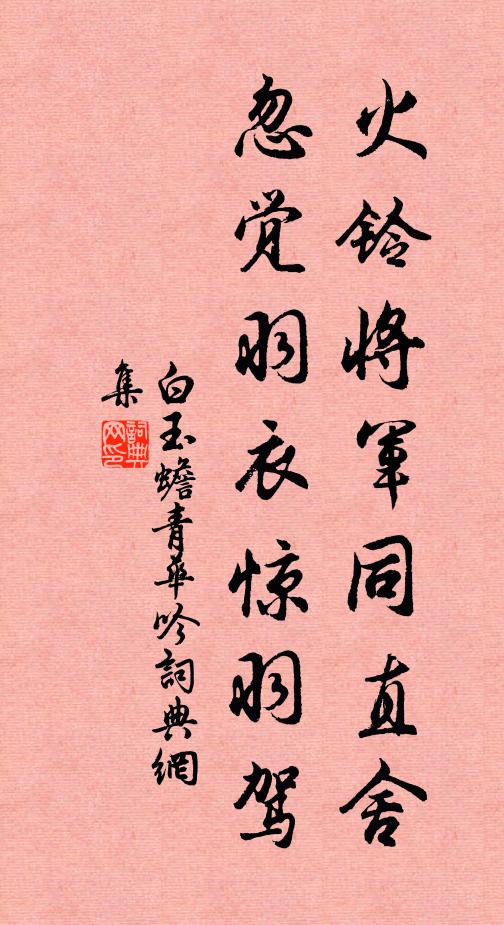 火铃将军同直舍
忽觉羽衣惊羽驾
白玉蟾青华吟詞典網
集
詞典网印